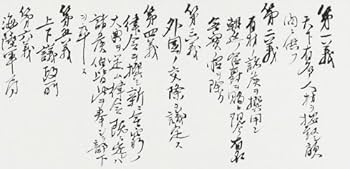 第一義
天下有名ノ人材ヲ招致シ顧
問ニ供フ
第二義
有材ノ諸侯ヲ撰用シ
朝廷ノ官爵ヲ賜ヒ現今有名
無実ノ官ヲ除ク
第三義
外国ノ交際ヲ議定ス
第四義
律令ヲ撰シ新ニ無窮ノ
大典ヲ定ム律令既ニ定レハ
諸侯伯皆此ヲ奉シテ部下
ヲ率ス
第五義
上下議政所
第六義
海陸軍局